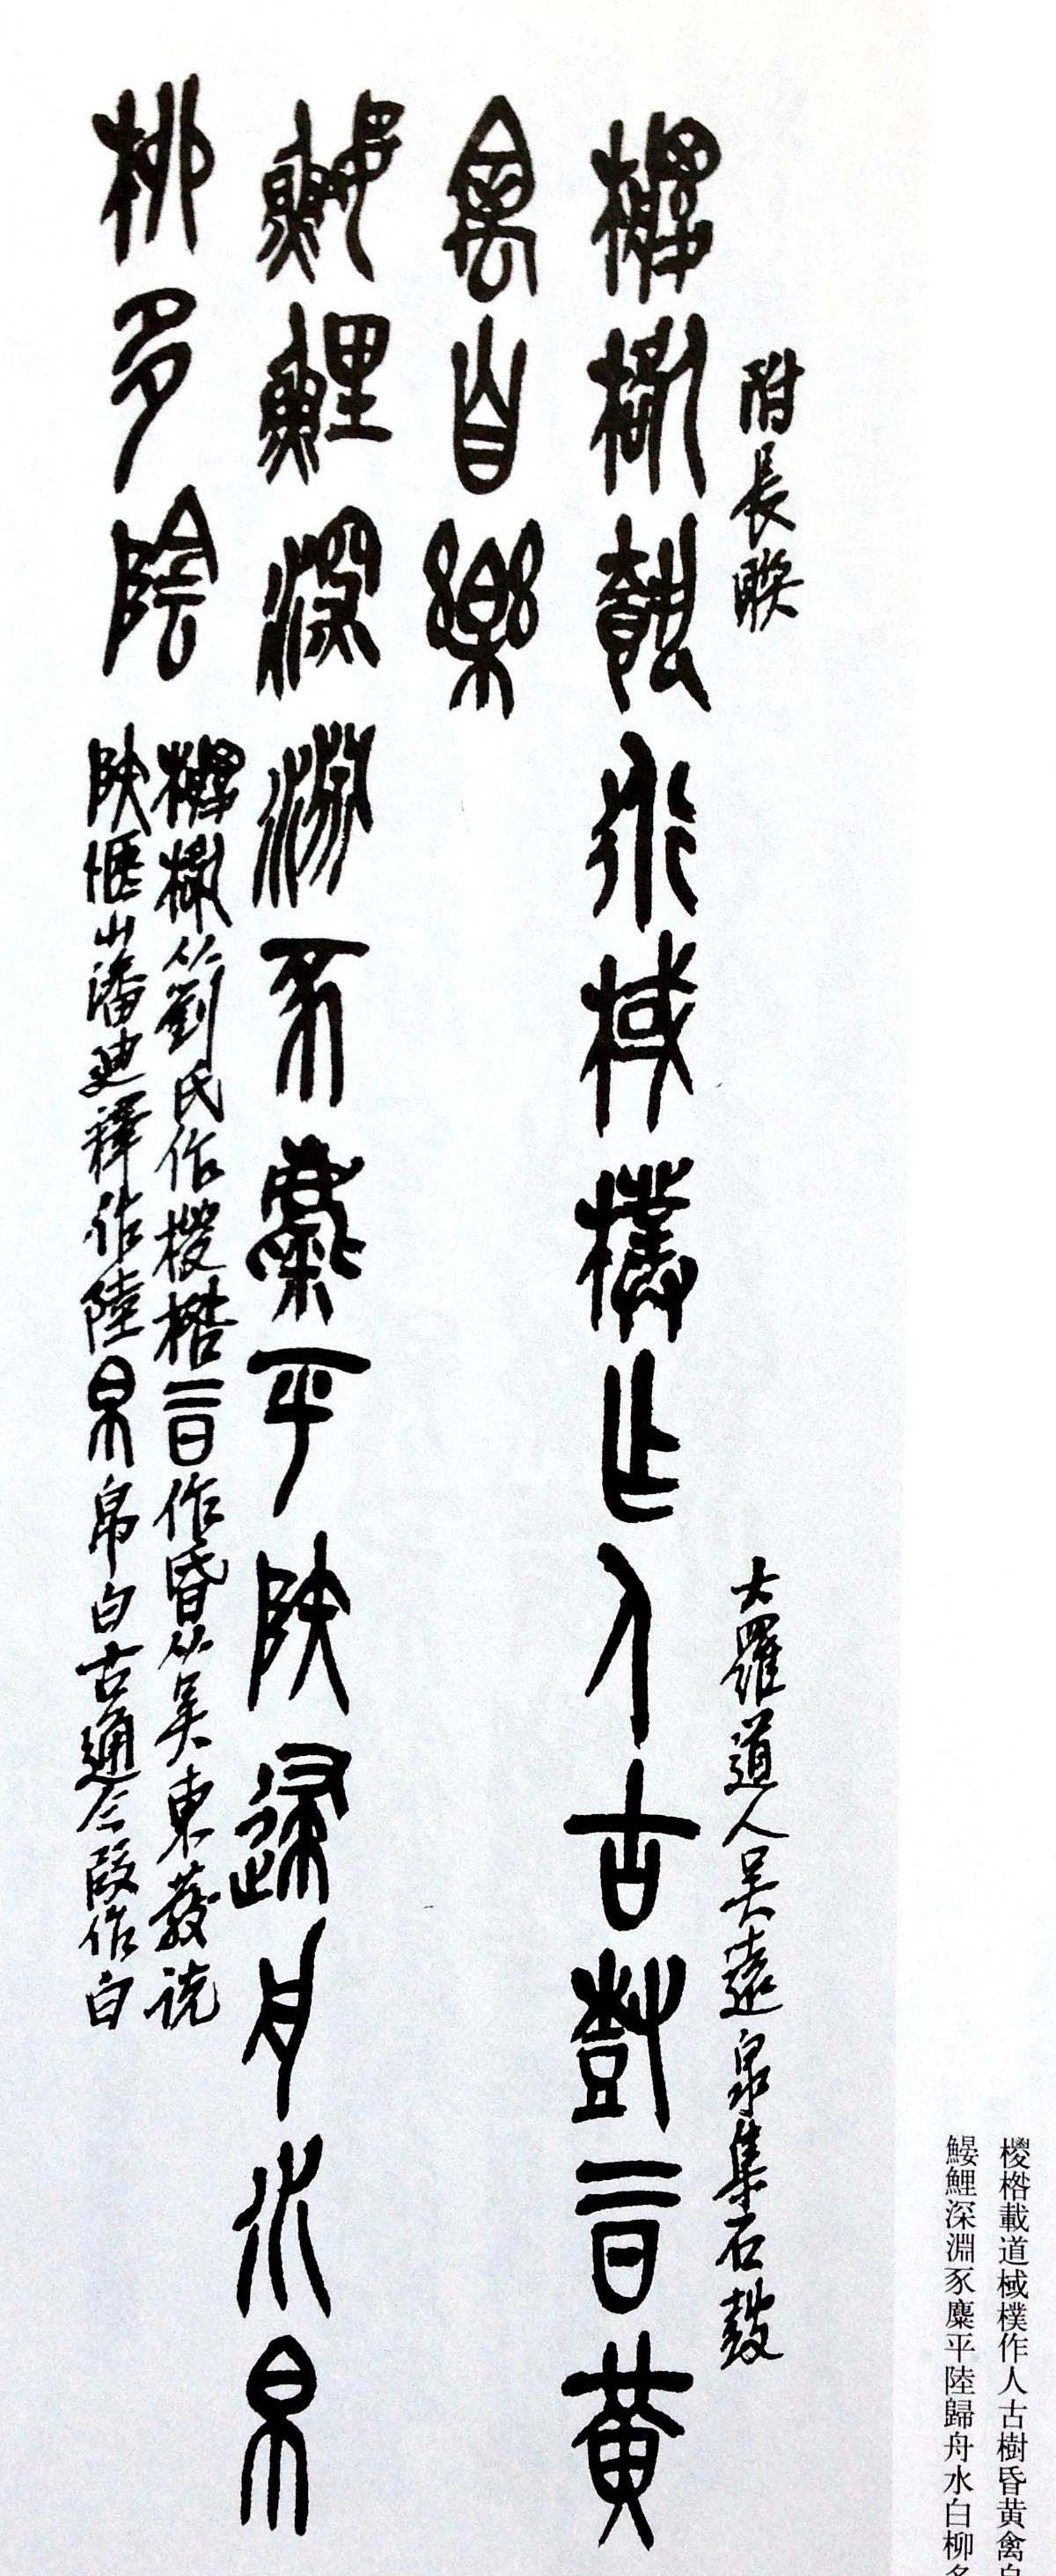 椶楛載道棫樸作人古樹昏黃禽自
鰋鯉深淵豕麋平陸歸舟水白柳多
附長聯
大羅道人吳遠泉集石鼓
椶楛載道棫樸作人古樹昏黃
禽自樂
鰋鯉深淵豕麋平陸歸舟水帛
柳多陰
椶楛從劉氏作椶楛昏作昏從吳東發說
陸愜山潘迪釋作陸帛帛白古通今叚作白